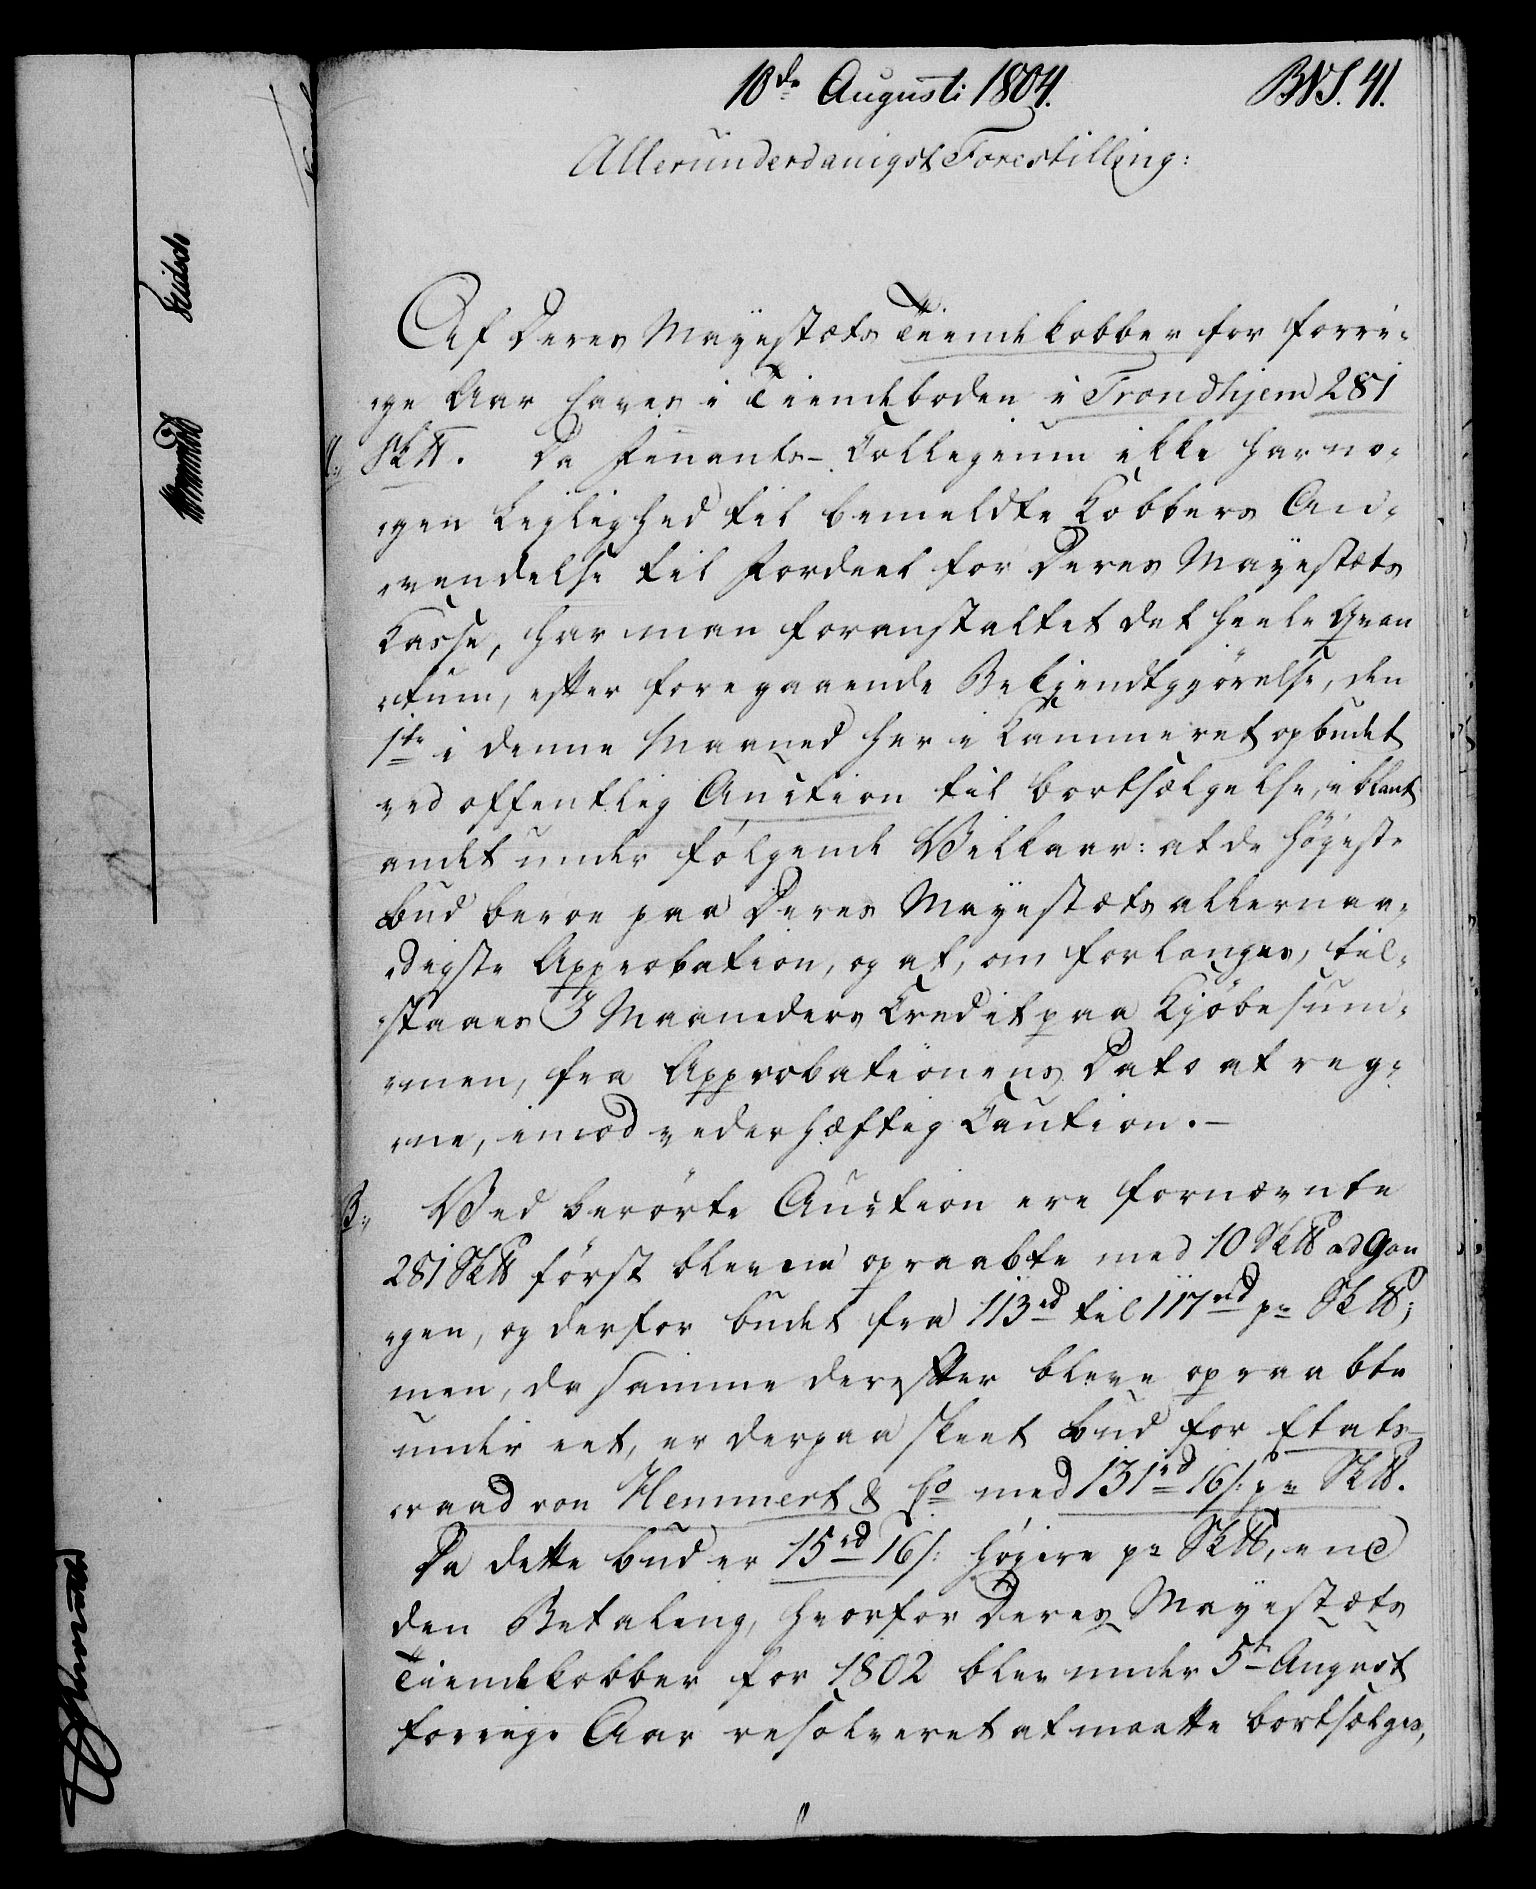 10de Augusti 1804. BNS. 41.
Allerunderdanigst Forestilling:
Af Deres Mayestæts Tiendekobber for forri-
ge Aar haves i Tiendeboden i Trondhjem 281
Sk℔. Da Finants-Collegium ikke har no-
gen Leylighed til bemeldte Kobbers An-
vendelse til Fordeel for Deres Mayestæts
Kasse, har man foranstaltet det heele Quan
tum, efter foregaaende Bekjendtgjörelse, den
1te i denne Maaned her i Kammeret opbudet
ved offentlig Auction til bortsælgelse, iblant
andet under fölgende Vilkaar: at de höyeste
Bud beroe paa Deres Mayestæts allernaa-
digste Approbation, og at, om forlanges, til-
staaes 3 Maaneders Credit paa Kjöbesum-
men, fra Approbationens Dato at reg-
ne, imod vederhæftig Caution.-
Ved berörte Auction ere fornævnte
281 Sk℔ först blevne opraabte med 10 Sk℔ ad Gan
gen, og derfor budet fra 113rd til 117rd pr Sk℔;
men, da samme derefter bleve opraabte
under eet, er derpaa skeet Bud for Etats-
raad von Hemmert & Co med 131rd 16/: pr Sk℔.
Da dette Bud er 15rd 16/: höyere pr Sk℔, end
den Betaling, hvorfor Deres Mayestæts
Tiendekobber for 1802 blev under 5te August
forrige Aar resolveret at maatte bortsælges,